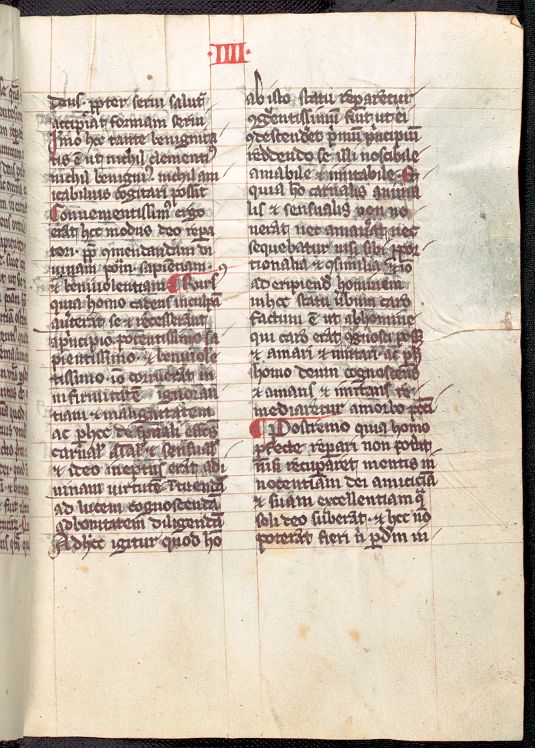 ·IIII·
deus. ppter seruū saluāt
accipiat formam serui
Imo hoc tante benignita
tis ē ut nichil clementiꝰ
nichil benigniꝰ nichil am
icabilius cogitari possit
Conuenientissimꝰ ergo
erat hic modus deo repa
tori. pp̄ cōmendandam di
uinam potn̄m sapiētiam.
& beniuolentiam ¶ Rursꝰ
quia homo cadens in culpam
auerterat se et recesserat
a principio potentissimo sa
pientissimo. & beniuole
tissimo. iō corruerat in
infirmitatē ignoran
tiam & malignitatem
ac p hoc de sp̄uali
carnal' aīal' & sensual'
& ideo ineptus erat ad di
uinam uirtutē imitandā
ad lucem cognoscendā
ad bonitatem diligendā
Ad hoc igitur quod ho
ab isto statu repararetur
ꝯgruentissimū fuit ut ei
ꝯdescenderet p̄mū p̄ncipiū
reddendo se illi noscibile
amabile & imitabile. Et
quia ho carnalis anima
lis & sensualis non no
uerat nec amabat nec
sequebatur nisi sibi ppor
tionalia & ꝯsimilia iō
ad eripiend hominem
in hoc statu uerbum caro
factum ē ut ab homine
qui caro erat ꝯgnosci posset
& amari & imitari. ac p h
homo deum cognoscens
& amans & imitans re
mediaretur a morbo pecti
¶ Postremo quia homo
pfecte repari non poterat
nisi recuparet mentis in
nocentiam dei amicicia
& suam excellentiam q̄
soli deo suberat. & hec no
poterāt fieri n̄ p dm̄ in